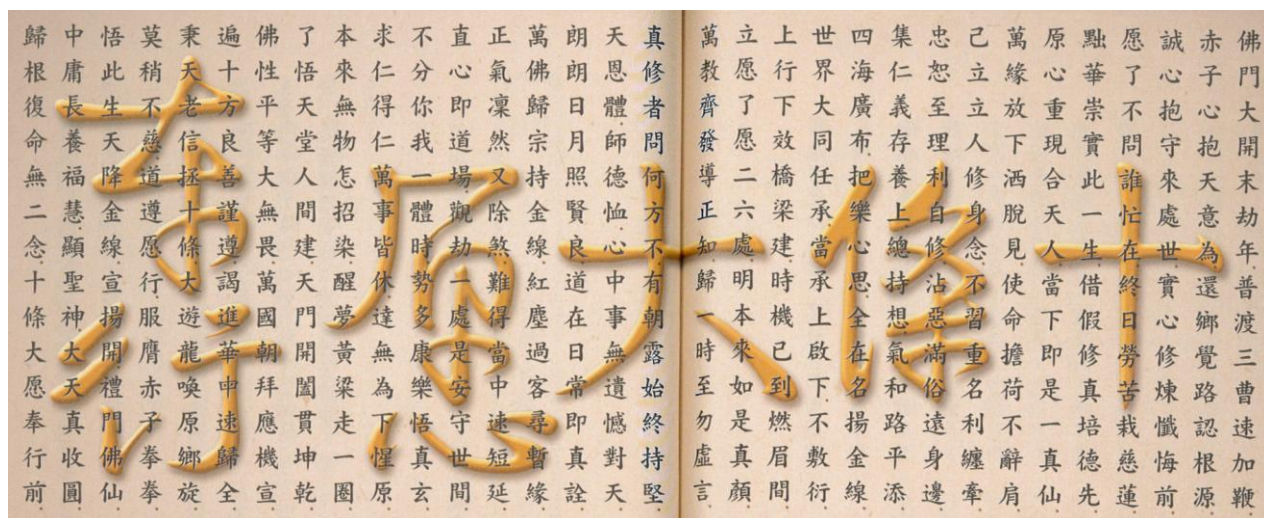 十條大愿奉行
佛門大開末劫年普渡三曹速加鞭
赤子心抱天意為還鄉覺路認根源
誠心抱守來處世實心修煉懺悔前
愿了不問誰忙在終日勞苦栽慈蓮
黜華崇實此一生借假修真培德先
原心重現合天人當下即是一真仙
萬緣放下洒脫見使命擔荷不辭肩
己立立人修身念不習重名利纏牽
忠恕至理利自修沾惡滿俗遠身邊
集仁義存養上總持想氣和路平添
四海廣布把樂心思全在名揚金線
世界大同任承當承上啟下不敷衍
上行下效橋梁建時機已到燃眉間
立愿了愿二六處明本來如是真顏
萬教齊發導正知歸一時至勿虛言
真修者問何方不有朝露始終持堅
天恩體師德恤心中事無遺憾對天
朗朗日月照賢良道在日常即真詮
萬佛歸宗持金線紅塵過客尋暫緣
正氣凜然又除煞難得當中速短延
直心即道場觀劫一處是安守世間
不分你我一體時勢多康樂悟真玄
求仁得仁萬事皆休達無為下惺原
本來無物怎招染醒夢黃梁走一圈
了悟天堂人間建天門開闔貫坤乾
佛性平等大無畏萬國朝拜應機宣
遍十方良善謹遵謁進華申速歸全
秉天老信拯十條大遊龍喚原鄉旋
莫稍不慈道遵愿行服膺赤子拳拳
悟此生天降金線宣揚開禮門佛仙
中庸長養福慧顯聖神大天真收圓
歸根復命無二念十條大愿奉行前